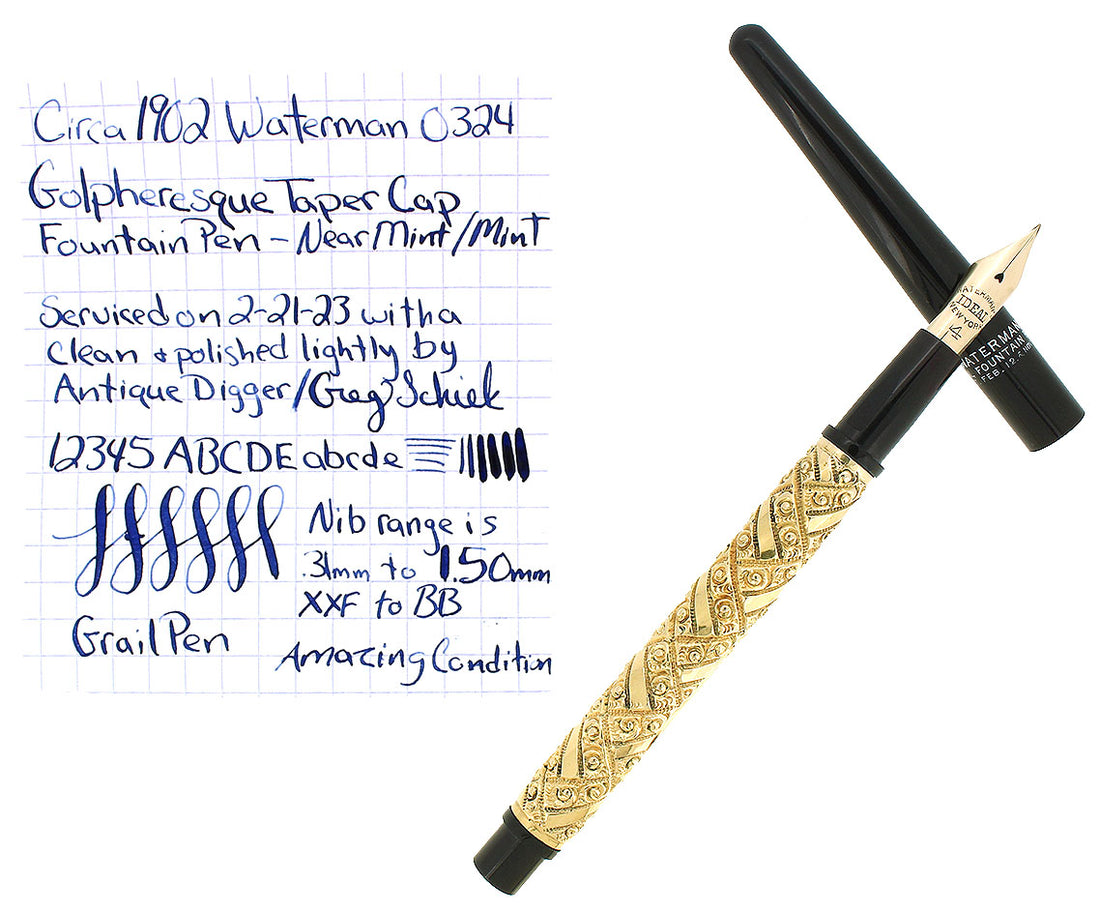 Circa 1902 Waterman 0324
Golpheresque Taper Cap
Fountain Pen - Near Mint/Mint
Serviced on 2-21-23 with a
clean & polished lightly by
Antique Digger/Greg Schiek
12345 ABCDE abcde
Nib range is
.31mm to 1.50mm
XXF to BB
Grail Pen
Amazing Condition
WATERMAN
IDEAL
NEW YORK
4
WATERMAN
FOUNTAIN
FEB. 12